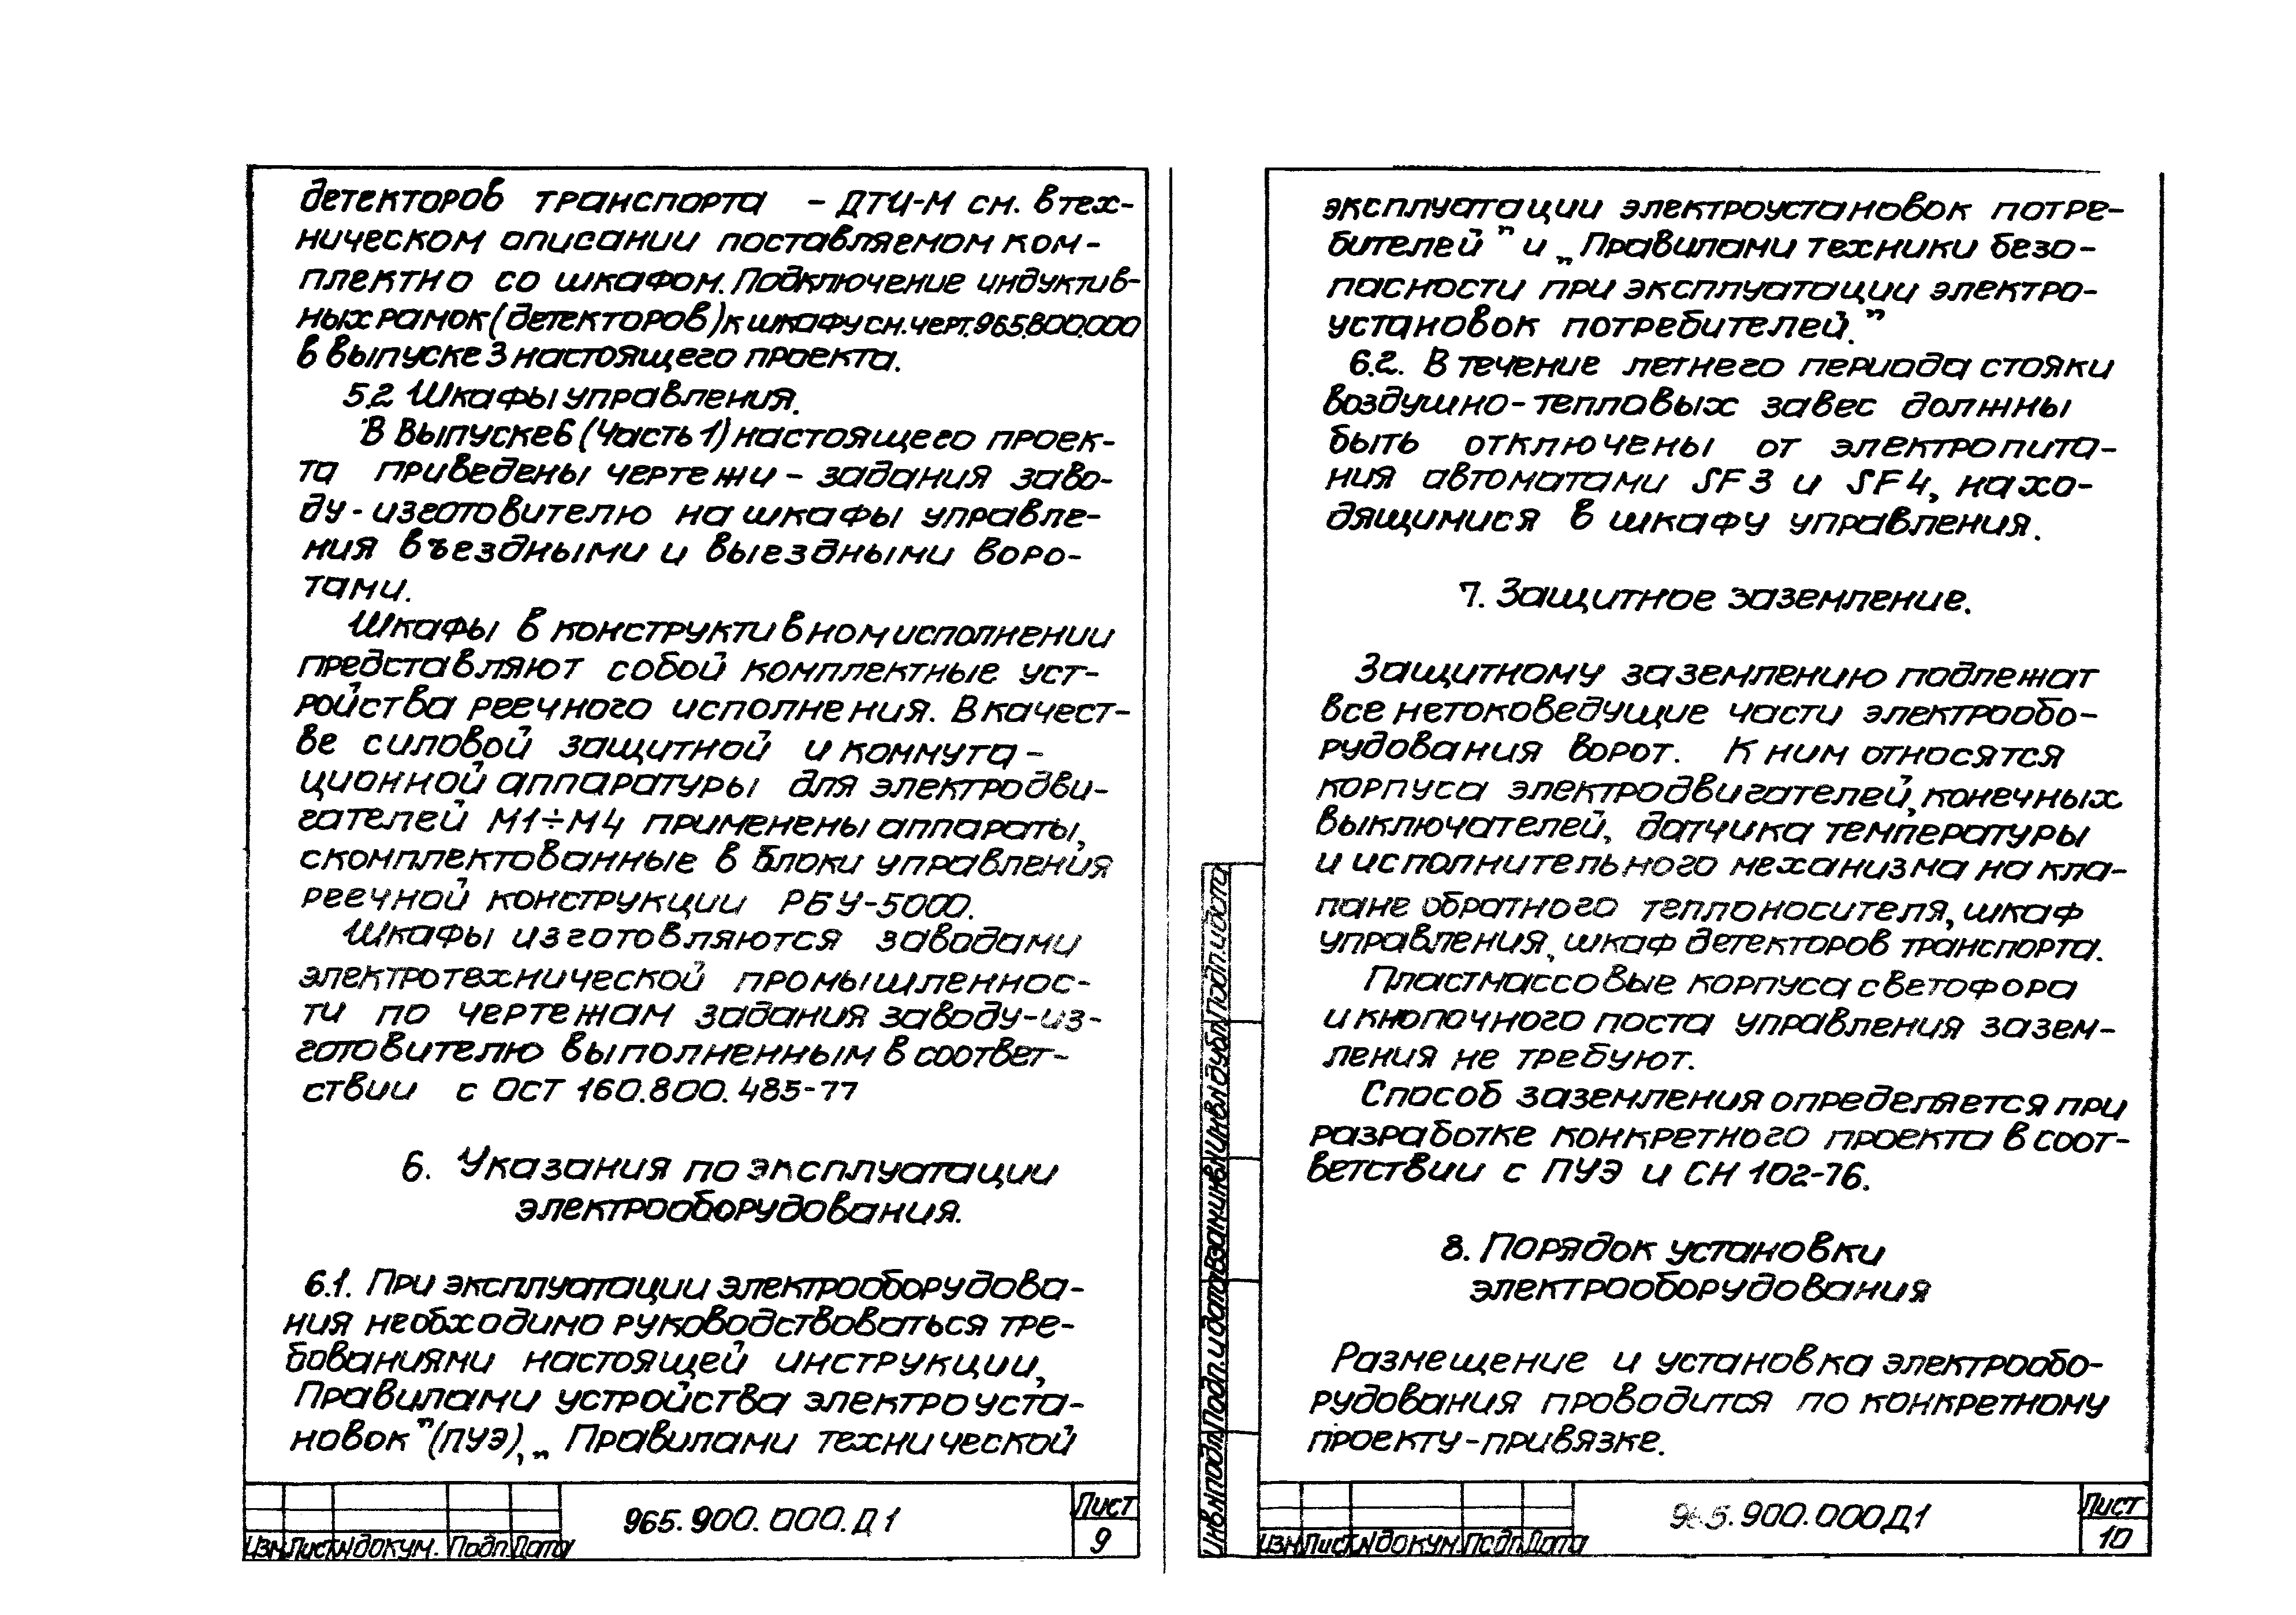 детекторов транспорта - ДТИ-М см. в тех-
ническом описании поставляемом ком-
плектно со шкафом. Подключение индуктив-
ных рамок (детекторов) к шкафу см. черт. 965.800.000
в выпуске 3 настоящего проекта.
5.2 Шкафы управления.
В Выпуске 6 (Часть 1) настоящего проек-
та приведены чертежи - задания заво-
ду - изготовителю на шкафы управле-
ния въездными и выездными воро-
тами.
Шкафы в конструктивном исполнении
представляют собой комплектные уст-
ройства реечного исполнения. В качест-
ве силовой защитной и коммута-
ционной аппаратуры для электродви-
гателей М1÷М4 применены аппараты,
скомплектованные в блоки управления
реечной конструкции РБУ-5000.
Шкафы изготовляются заводами
электротехнической промышленнос-
ти по чертежам задания заводу-из-
готовителю выполненным в соответ-
ствии с ОСТ 160.800.485-77
6. Указания по эксплуатации
электрооборудования.
6.1. При эксплуатации электрооборудова-
ния необходимо руководствоваться тре-
бованиями настоящей инструкции,
Правилами устройства электроуста-
новок" (ПУЭ), „Правилами технической
965.900.000.Д1
Лист
9
Изм. Лист N докум. Подп. Дата
эксплуатации электроустановок потре-
бителей" и „Правилами техники безо-
пасности при эксплуатации электро-
установок потребителей."
6.2. В течение летнего периода стояки
воздушно-тепловых завес должны
быть отключены от электропита-
ния автоматами SF3 и SF4, нахо-
дящимися в шкафу управления.
7. Защитное заземление.
Защитному заземлению подлежат
все нетоковедущие части электрообо-
рудования ворот. К ним относятся
корпуса электродвигателей, конечных
выключателей, датчика температуры
и исполнительного механизма на кла-
пане обратного теплоносителя, шкаф
управления, шкаф детекторов транспорта.
Пластмассовые корпуса светофора
и кнопочного поста управления зазем-
ления не требуют.
Способ заземления определяется при
разработке конкретного проекта в соот-
ветствии с ПУЭ и СН 102-76.
8. Порядок установки
электрооборудования
Размещение и установка электрообо-
рудования проводится по конкретному
проекту-привязке.
Инв.N подл. Подп. и дата Взам.инв.N Инв.N дубл. Подп. и дата
965.900.000Д1
Лист
10
Изм. Лист N докум. Подп. Дата